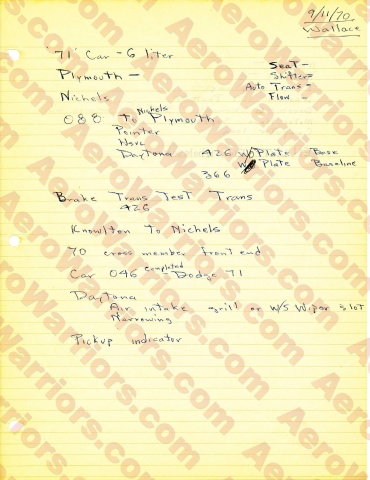 9/11/70
Wallace
'71' Car - 6 liter
Seat -
Plymouth -
Shifter -
Auto Trans -
Nichels
Flow -
Nichels
088 To Plymouth
Pointer
Daytona 426 w/o Plate Base
w/ Plate Baseline
366
Brake Trans Test Trans
426
Knowlton to Nichels
70 cross member front end
Car 046 completed Dodge 71
Daytona
Air intake grill or W/S Wiper slot
Narrowing
Pickup indicator
AeroWarriors.com